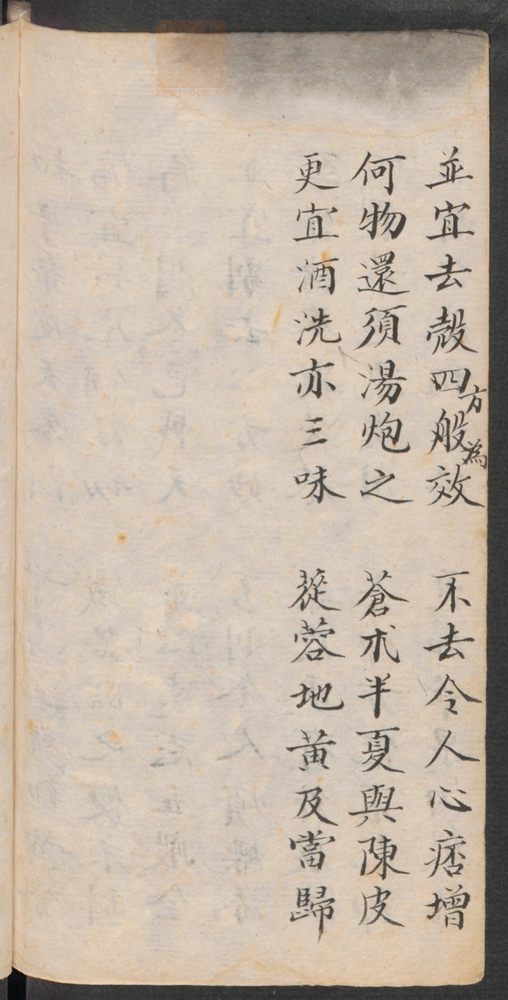 並宜去殼四般效 不去令人心痞增
方為
何物還須湯炮之 蒼朮半夏與陳皮
更宜酒洗亦三味 蓯蓉地黃及當歸